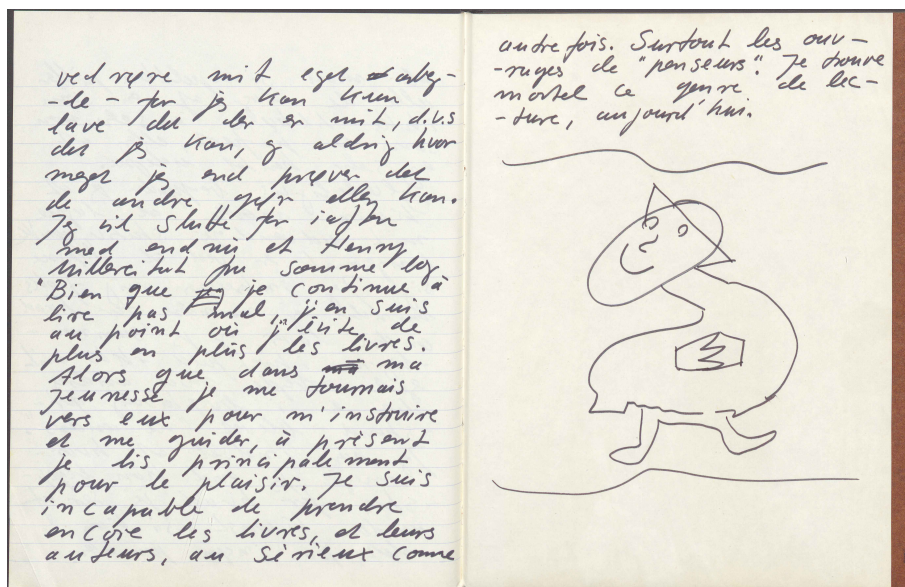 ved være mit eget arbej-
-de - for jeg kan kun
lave det der er mit, d.v.s
det jeg kan, og aldrig hvor
meget jeg end prøver det
de andre gør eller kan.
Jeg vil slutte for iaften
med endnu et Henry
Millercitat fra samme bog
"Bien que je continue à
lire pas mal, j'en suis
au point où j'évite de
plus en plus les livres.
Alors que dans ma
jeunesse je me tournais
vers eux pour m'instruire
et me guider, à présent
je lis principalement
pour le plaisir. Je suis
incapable de prendre
encore les livres, et leurs
auteurs, au sérieux comme
autre fois. Surtout les ouv-
-rages de "penseurs". Je trouve
mortel ce genre de lec-
-ture, aujourd'hui.